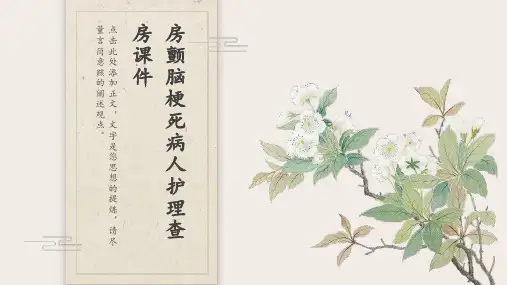 房颤脑梗死病人护理查
房课件
点击此处添加正文，文字是您思想的提炼，请尽
量言简意赅的阐述观点。